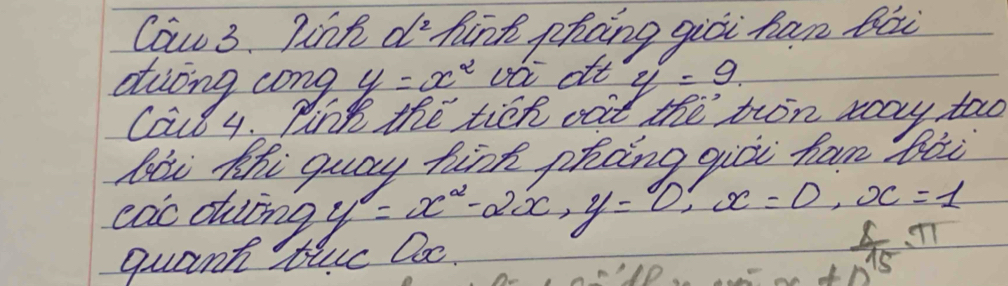 Câu 3. Tính d² hình phẳng giới hạn bởi
đường cong y = x² và đt y = 9.
Câu 4. Tính thể tích vật thể tròn xoay tạo
bởi khi quay hình phẳng giới hạn bởi
các đường y = x² - 2x, y = 0, x = 0, x = 1
quanh trục Ox.
8/15 . π